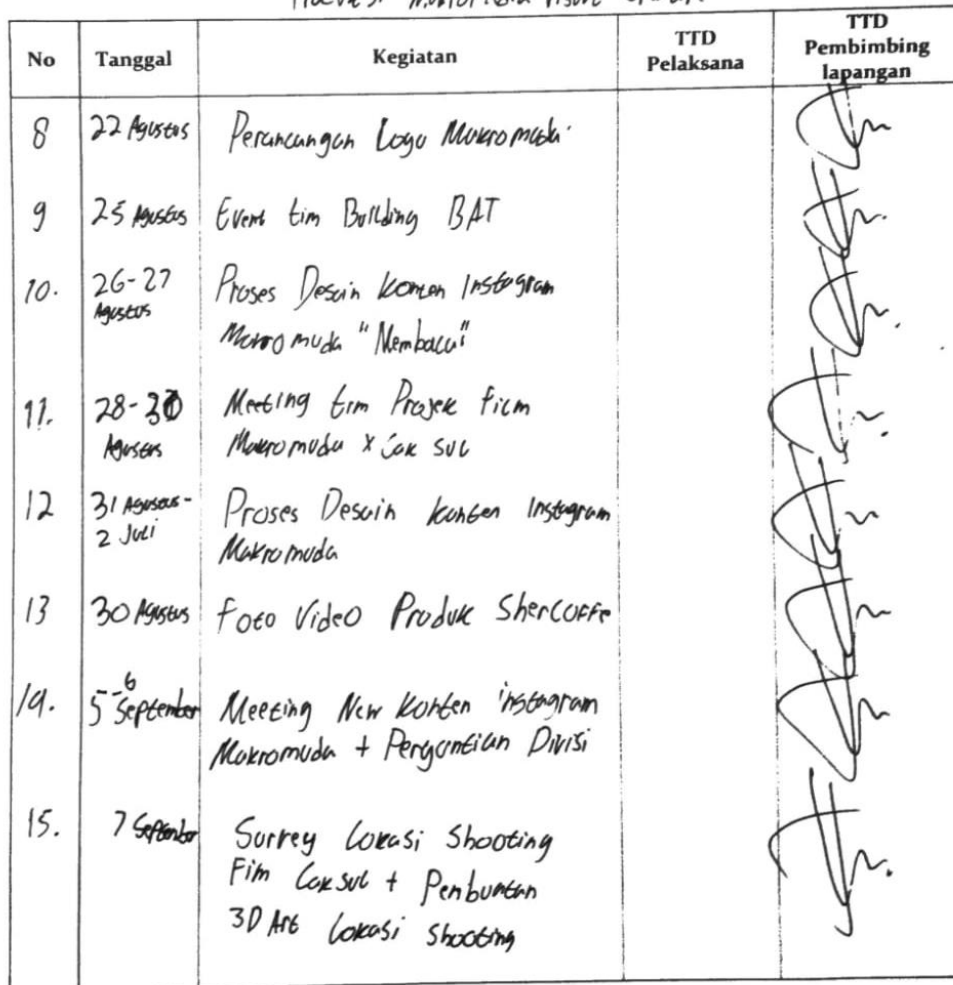 No Tanggal Kegiatan TTD Pelaksana TTD Pembimbing lapangan
8 22 Agustus Perancangan Logo Makromuda
9 25 Agustus Event tim Building BAT
10. 26-27 Agustus Proses Desain konten Instagram
Makromuda "Membaca"
11. 28-30 Agustus Meeting tim Projek Film
Makromuda x Cak Sul
12 31 Agustus - 2 Juli Proses Desain konten Instagram
Makromuda
13 30 Agustus Foto Video Produk Shercoffe
14. 5-6 September Meeting New Konten instagram
Makromuda + Pergantian Divisi
15. 7 September Survey Lokasi Shooting
Fim Cak sul + Penbuatan
3D Art Lokasi Shooting